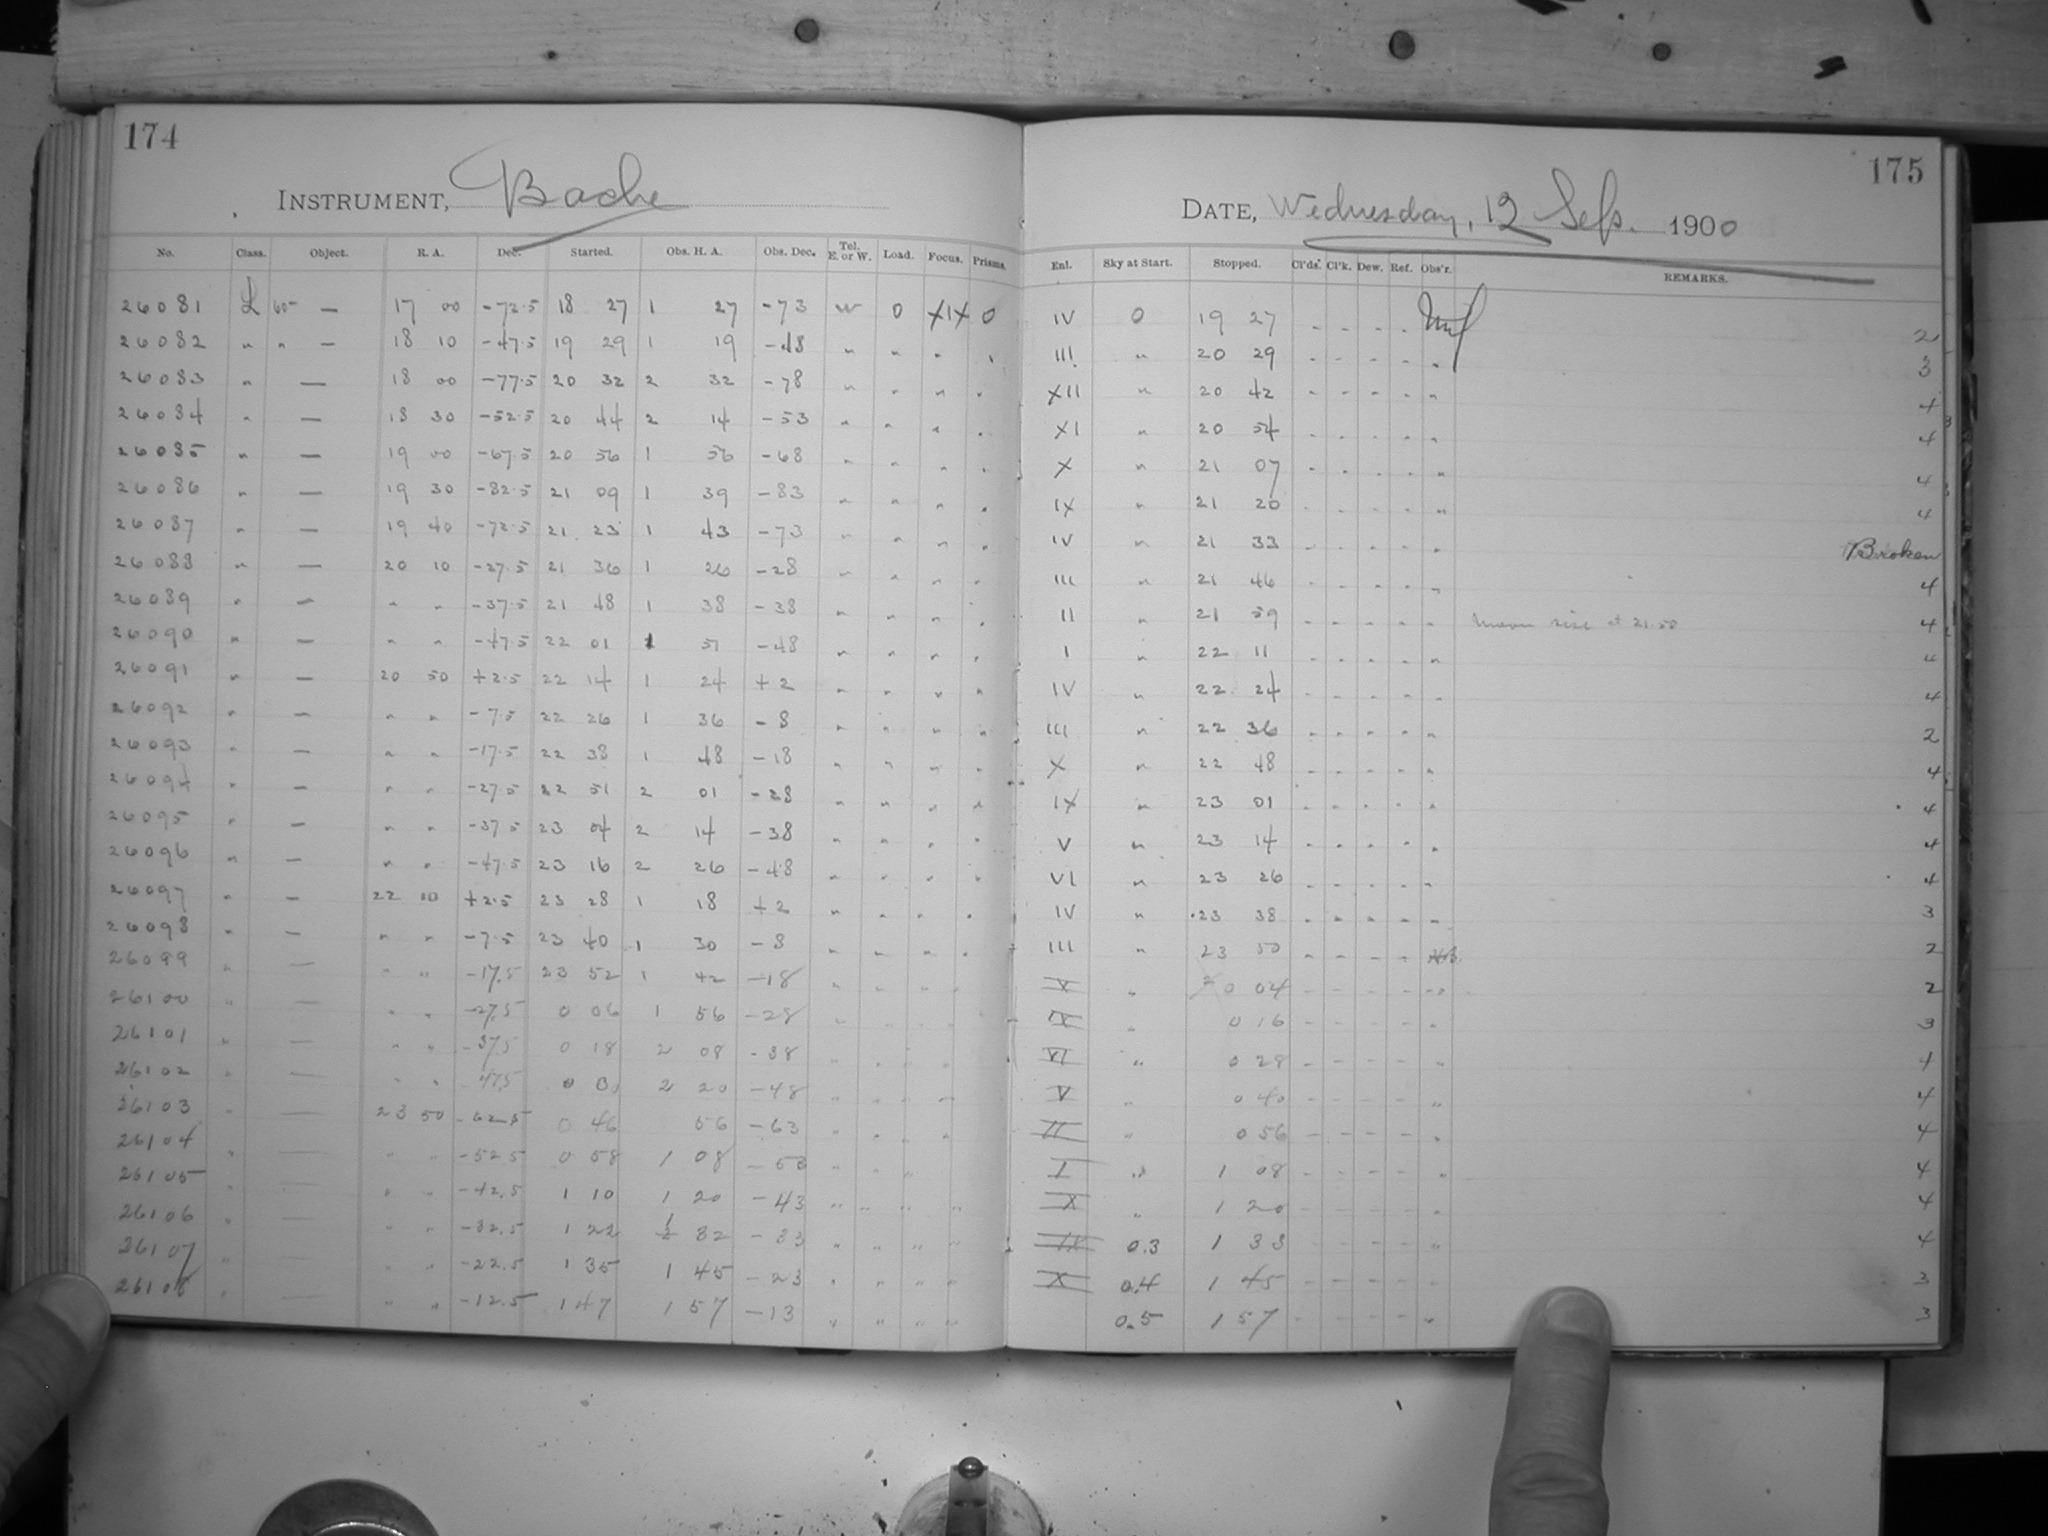 174
INSTRUMENT, Bache
No. Class. Object. R. A. Dec. Started. Obs. H. A. Obs. Dec. Tel. E. or W. Load. Focus. Prisms.
26081 L 60- — 17 00 -72.5 18 27 1 27 -73 W 0 XIX 0
26082 " " — 18 10 -47.5 19 29 1 19 -48 " " " "
26083 " — 18 00 -77.5 20 32 2 32 -78 " " " "
26084 " — 18 30 -52.5 20 44 2 14 -53 " " " "
26085 " — 19 00 -67.5 20 56 1 56 -68 " " " "
26086 " — 19 30 -82.5 21 09 1 39 -83 " " " "
26087 " — 19 40 -72.5 21 23 1 43 -73 " " " "
26088 " — 20 10 -27.5 21 36 1 26 -28 " " " "
26089 " — " " -37.5 21 48 1 38 -38 " " " "
26090 " — " " -47.5 22 01 1 51 -48 " " " "
26091 " — 20 50 +2.5 22 14 1 24 +2 " " " "
26092 " — " " -7.5 22 26 1 36 -8 " " " "
26093 " — " " -17.5 22 38 1 48 -18 " " " "
26094 " — " " -27.5 22 51 2 01 -28 " " " "
26095 " — " " -37.5 23 04 2 14 -38 " " " "
26096 " — " " -47.5 23 16 2 26 -48 " " " "
26097 " — 22 10 +2.5 23 28 1 18 +2 " " " "
26098 " — " " -7.5 23 40 1 30 -8 " " " "
26099 " — " " -17.5 23 52 1 42 -18 " " " "
26100 " — " " -27.5 0 06 1 56 -28 " " " "
26101 " — " " -37.5 0 18 2 08 -38 " " " "
26102 " — " " -47.5 0 2 20 -48 " " " "
26103 " — 23 50 -62.5 0 46 56 -63 " " " "
26104 " — " " -52.5 0 58 1 08 -53 " " " "
26105 " — " " -42.5 1 10 1 20 -43 " " " "
26106 " — " " -32.5 1 22 1 32 -33 " " " "
26107 " — " " -22.5 1 35 1 45 -23 " " " "
26108 " — " " -12.5 1 47 1 57 -13 " " " "
175
DATE, Wednesday, 12 Sep. 1900
Enl. Sky at Start. Stopped. Cl'ds. Cl'k. Dew. Ref. Obs'r. REMARKS.
IV 0 19 27 - - - - 2
III " 20 29 - - - - " 3
XII " 20 42 - - - - " 4
XI " 20 54 - - - - " 4
X " 21 07 - - - - " 4
IX " 21 20 - - - - " 4
IV " 21 33 - - - - " Broken
III " 21 46 - - - - " 4
II " 21 59 - - - - " moon rise at 21.50 4
I " 22 11 - - - - " 4
IV " 22 24 - - - - " 4
III " 22 36 - - - - " 2
X " 22 48 - - - - " 4
IX " 23 01 - - - - " 4
V " 23 14 - - - - " 4
VI " 23 26 - - - - " 4
IV " 23 38 - - - - " 3
III " 23 50 - - - - 2
X " 0 04 - - - - " 2
IX " 0 16 - - - - " 3
VI " 0 28 - - - - " 4
V " 0 40 - - - - " 4
II " 0 56 - - - - " 4
I " 1 08 - - - - " 4
X " 1 20 - - - - " 4
IX 0.3 1 33 - - - - " 4
X 0.4 1 45 - - - - " 3
0.5 1 57 - - - - " 3